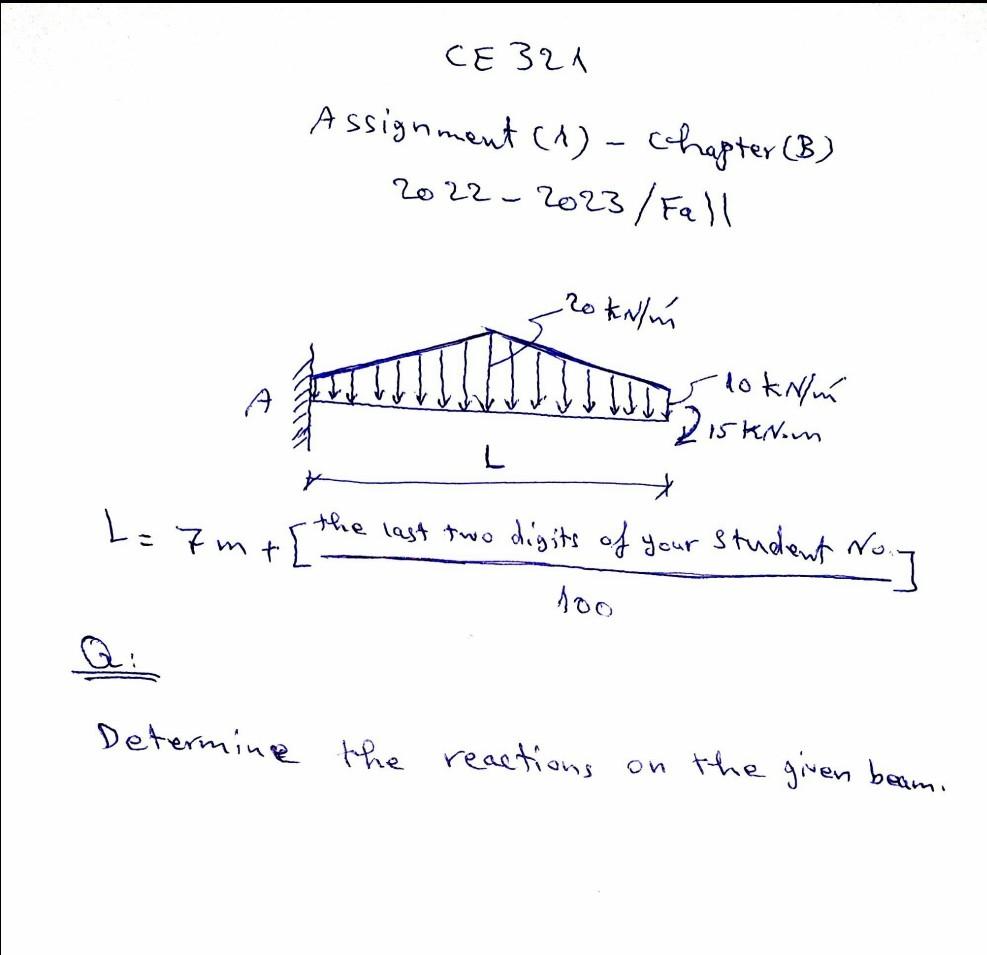 CE 321
Assignment (1) - Chapter (B)
2022 - 2023 / Fall
20 kN/m
A
10 kN/m
15 KN.m
L
L = 7 m + [ the last two digits of your student No. ]
100
Q:
Determine the reactions on the given beam.